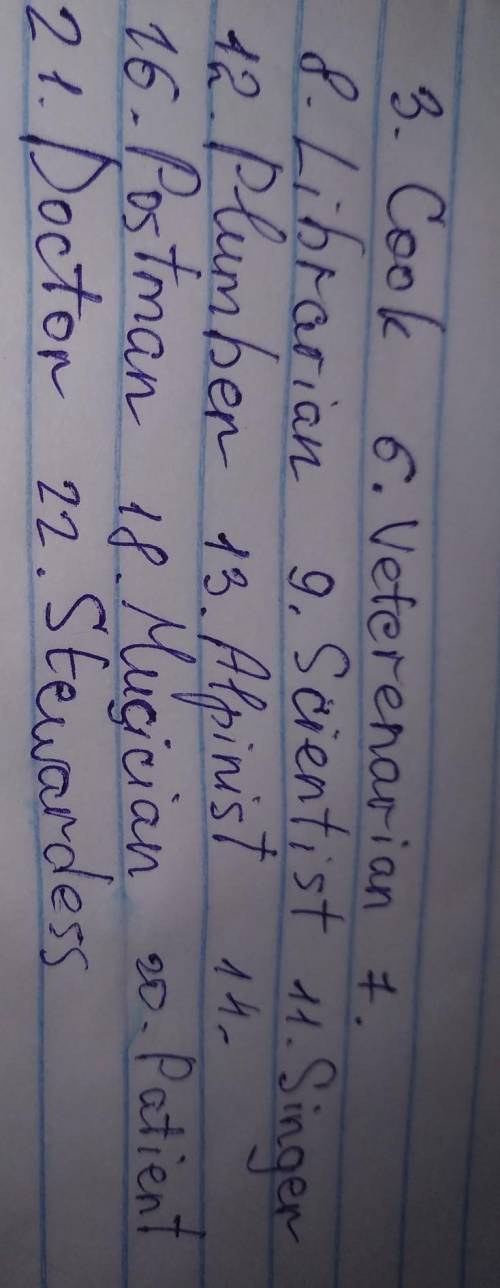 3. Cook 6. Veterenarian 7.
8. Librarian 9. Scientist 11. Singer
12. Plumber 13. Alpinist 14.
16. Postman 18. Mugician 20. Patient
21. Doctor 22. Stewardess